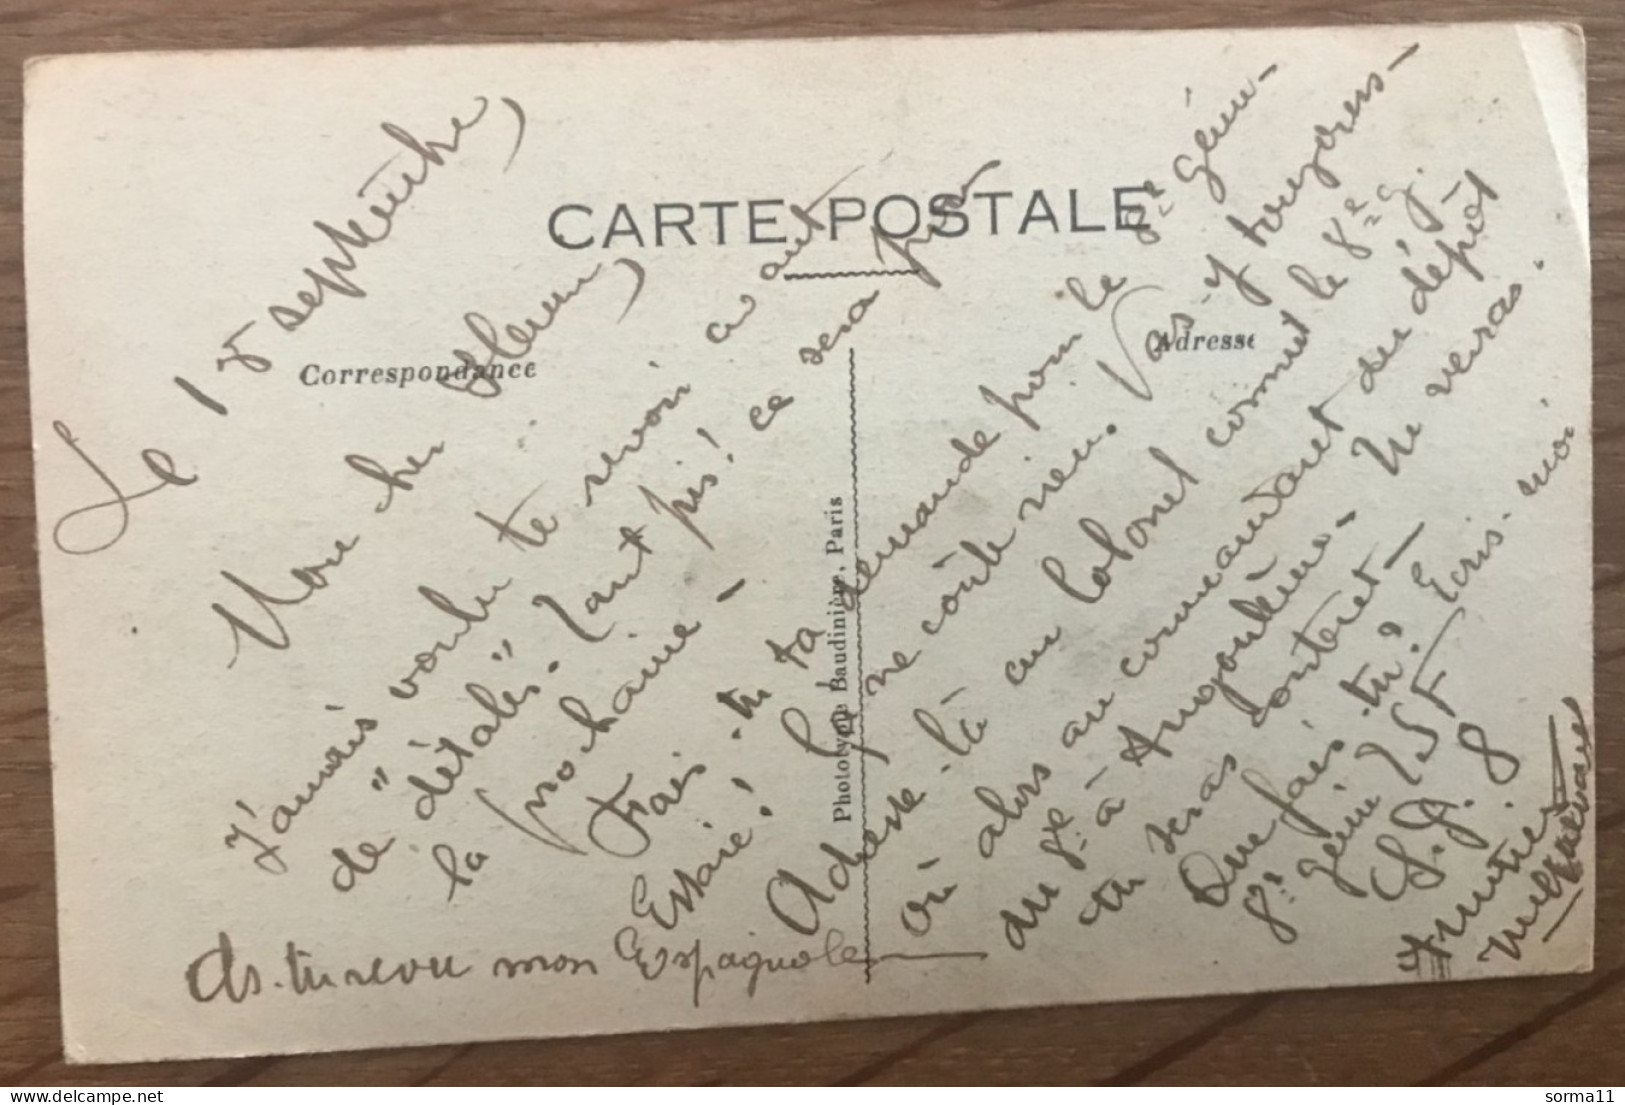 CARTE POSTALE
Correspondance
Adresse
Photolypie Baudinière, Paris
Le 15 septembre,
Mon cher
J'aurais voulu te revoir avant
de "détaler". Tant pis! ce sera pour
la prochaine -
Fais-tu ta demande pour le 8e génie -
Essaie! ça ne coûte rien. Vas-y toujours -
Adresse-là au Colonel commt le 8e g.
où alors au commandant du dépôt
du 8e à Angoulême. Tu verras.
tu seras content -
Que fais-tu? Écris-moi
8e génie T S F
C. I. 8
As-tu revu mon Espagnole
sorma11